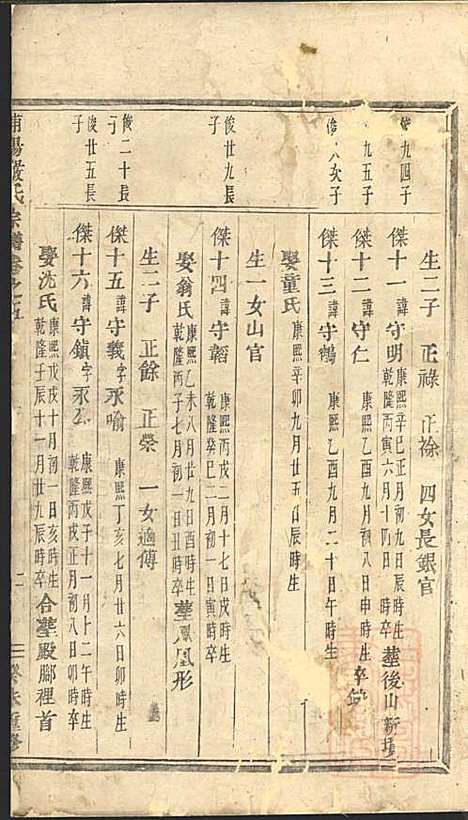 生二子 正祿 正祿 四女長銀官
俊九四子
傑十一 諱守明 康熙辛巳正月初九日辰時生 乾隆丙寅六月十四日 時卒 葬後山新墳
九五子
傑十二 諱守仁 康熙乙酉八月初八日申時生 卒
俊八次子
傑十三 諱守鶴 康熙乙酉九月二十日午時生
娶童氏 康熙辛卯九月廿五日辰時生
生一女山官
俊廿九長子
傑十四 諱守韜 康熙丙戌二月十七日戌時生 乾隆癸巳二月初一日寅時卒
娶翁氏 康熙乙未八月廿九日酉時生 乾隆丙子七月初一日丑時卒 葬鳳凰形
生二子 正餘 正榮 一女適傅
俊二十長子
傑十五 諱守義 字永喻 康熙丁亥七月廿六日卯時生
俊廿五長子
傑十六 諱守鎮 字永 康熙戊子十一月十二午時生 乾隆丙戌正月初八日卯時卒
娶沈氏 康熙戊戌十月初一日亥時生 乾隆壬辰十一月廿九辰時卒 合葬殿腳裡首
南陽 氏宗譜卷之五